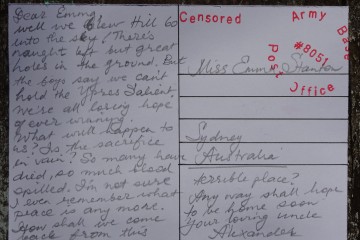 Dear Emma
well we blew Hill 60
into the sky. There's
naught left but great
holes in the ground. But
the boys say we can't
hold the Ypres Salient.
We're all losing hope
of ever winning.
What will happen to
us? Is the sacrifice
in vain? So many have
died, so much blood
spilled. I'm not sure
I even remember what
peace is any more.
How shall we come
back from this
terrible place?
Any way shall hope
to be home soon
Your loving uncle
Alexander
Censored Army Base
#8051
Post Office
Miss Emma Stanton
Sydney
Australia